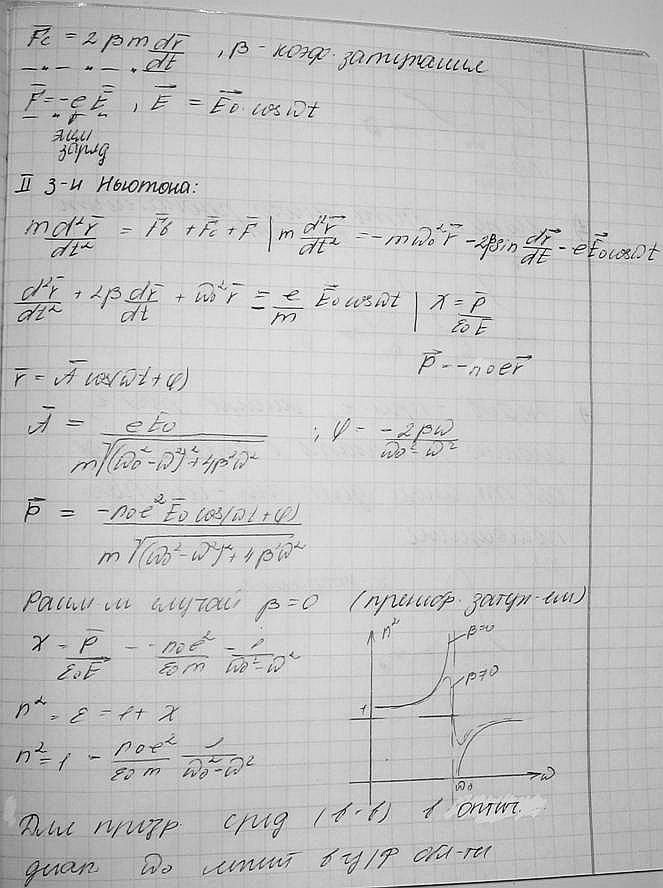 F̄c = 2βm dr̄/dt, β - коэф. затухания
F̄ = -eĒ, Ē = Ē₀·cosωt
элем
заряд
II з-н Ньютона:
m d²r̄/dt² = F̄в + F̄c + F̄ | m d²r̄/dt² = -mω₀²r̄ - 2βm dr̄/dt - eĒ₀cosωt
d²r̄/dt² + 2β dr̄/dt + ω₀²r̄ = - e/m Ē₀cosωt | χ = P̄/ε₀Ē
P̄ = -n₀er̄
r̄ = Ā cos(ωt+φ)
Ā = eE₀/m√((ω₀²-ω²)²+4β²ω²) ; φ = -2βω/ω₀²-ω²
P̄ = -n₀e²Ē₀cos(ωt+φ)/m√((ω₀²-ω²)²+4β²ω²)
Рассм-м случай β=0 (пренебр. затух-ем)
χ = P̄/ε₀Ē = - n₀e²/ε₀m 1/ω₀²-ω²
n² = ε = 1 + χ
n² = 1 - n₀e²/ε₀m 1/ω₀²-ω²
n²
β=0
β≠0
1
ω₀
ω
Для прозр. сред (в-в) в оптич.
диап. ω₀ лежит в у/ф обл-ти